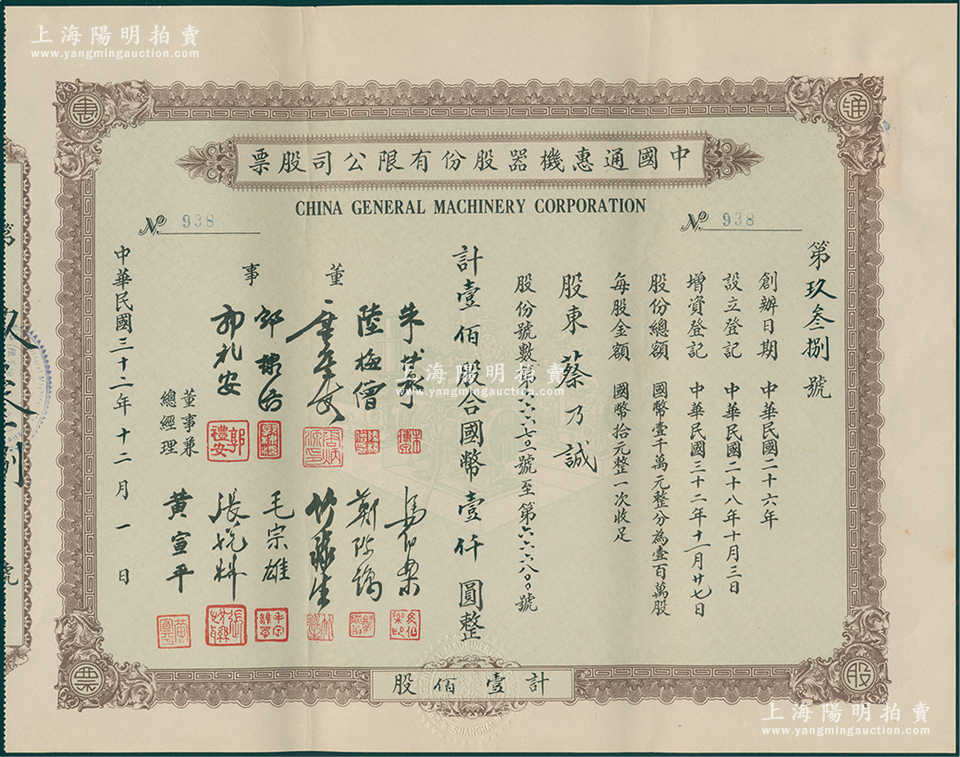 上海陽明拍賣
www.yangmingauction.com
通
惠
中國通惠機器股份有限公司股票
CHINA GENERAL MACHINERY CORPORATION
№ 938
№ 938
第玖叁捌號
創辦日期 中華民國二十六年
設立登記 中華民國二十八年十月三日
增資登記 中華民國三十二年十一月廿七日
股份總額 國幣壹千萬元整分為壹百萬股
每股金額 國幣拾元整一次收足
股東 蔡乃誠
股份號數第六六六七〇一號至第六六六八〇〇號
計壹佰股合國幣壹仟圓整
董事
朱
陸梅僧
郭禮安
鄭
毛宗雄
董事兼總經理
黃宣平
中華民國三十二年十二月一日
計壹佰股
股
票
上海陽明拍賣
www.yangmingauction.com
上海陽明拍賣
www.yangmingauction.com